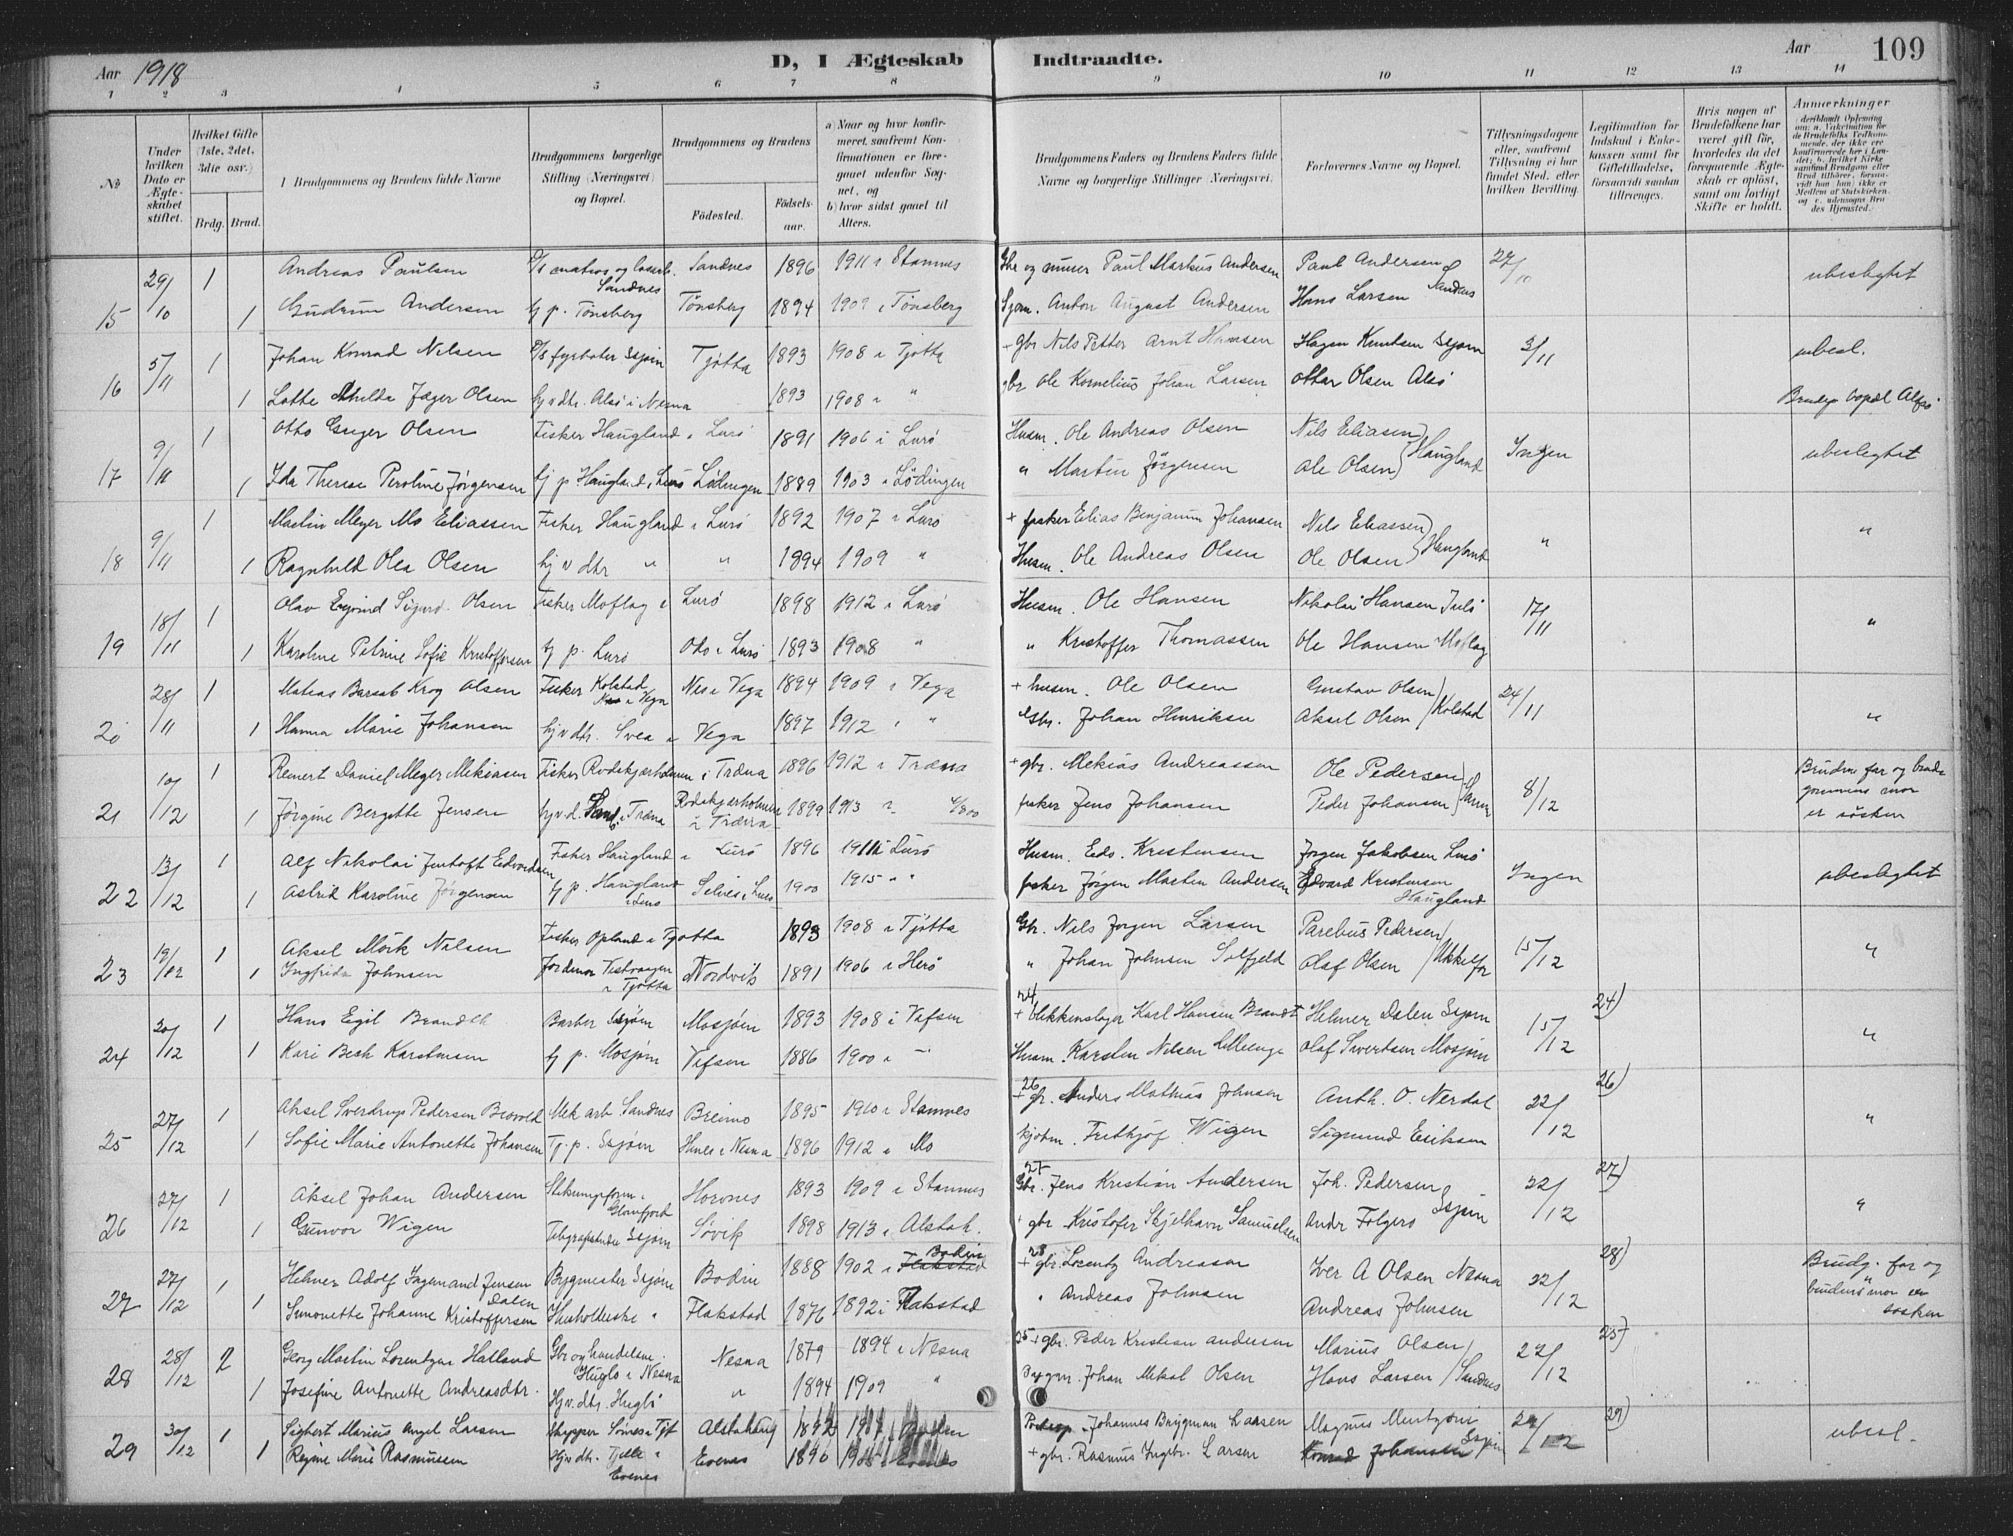 Aar 1918
D, I Ægteskab Indtraadte.
Aar 109
1 2 3 4 5 6 7 8 9 10 11 12 13 14
No
Under hvilken Dato er Ægteskabet stiftet.
Hvilket Gifte (1ste, 2det, 3die osv.)
Brdg. Brud.
Brudgommens og Brudens fulde Navne
Brudgommens borgerlige Stilling (Næringsvei) og Bopæl.
Brudgommens og Brudens
Födested. Födselsaar.
a) Naar og hvor konfirmeret, saafremt Konfirmationen er foregaaet udenfor Sognet, og
b) hvor sidst gaaet til Alters.
Brudgommens Faders og Brudens Faders fulde Navne og borgerlige Stillinger (Næringsvei).
Forlovernes Navne og Bopæl.
Tillysningsdagene eller, saafremt Tillysning ei har fundet Sted, efter hvilken Bevilling.
Legitimation for Indskud i Enkekassen samt for Giftetilladelse, forsaavidt saadan tiltrænges.
Hvis nogen af Brudefolkene har været gift för, hvorledes da det foregaaende Ægteskab er oplöst, samt om lovligt Skifte er holdt.
Anmærkninger
15 29/10 1 Andreas Paulsen Sandnes Sandnes 1896 1911 i Stamnes Gbr og murer Paul Markus Andersen Paul Andersen Sandnes 27/10 ubeslegtet
1 Gudrun Andersen tj p. Tönsberg Tönsberg 1894 1909 i Tönsberg Sjøm. Anton August Andersen Hans Larsen
16 5/11 1 Johan Konrad Nilsen fyrbøter Ssjøen Tjøtta 1893 1908 i Tjøtta + gbr Nils Petter Arnt Hansen Hagen Knutsen Ssjøen 3/11 ubesl.
1 Lotte Mhilda Jæger Olsen hjvdtr. Alsø i Nesna 1893 1908 i " gbr Ole Kornelius Johan Larsen Ottar Olsen Alsø Brudg. bopæl
17 9/11 1 Otto Olsen Fisker Haugland i Lurö 1891 1906 i Lurö Husm. Ole Andreas Olsen Nils Eliasen Haugland Ingen ubeslegtet
1 Ida Therese Peroline Jörgensen tj p Haugland i Lurö Lödingen 1889 1903 i Lödingen " Martin Jörgensen Ole Olsen
18 9/11 1 Martin Meyer Mo Eliassen Fisker Haugland i Lurö 1892 1907 i Lurö + fisker Elias Benjamin Johansen Nils Eliassen Haugland " "
1 Ragnhild Olea Olsen hj v dtr " " 1894 1909 " Husm. Ole Andreas Olsen Ole Olsen
19 18/11 1 Olav Sigurd Olsen Fisker Moflag i Lurö 1898 1912 i Lurö Husm. Ole Hansen Nikolai Hansen 17/11 "
1 Karoline Petrine Sofie Kristoffersen tj p. Lurö i Lurö 1893 1908 " " Kristoffer Thomassen Ole Hansen Moflag
20 28/11 1 Matias Krog Olsen Fisker Kolstad i Vega Nes i Vega 1894 1909 i Vega + husm. Ole Olsen Gustav Olsen Kolstad 24/11 "
1 Hanna Marie Johansen hjvdtr. Svea i Vega 1897 1912 i " Johan Henriksen Aksel Olsen
21 10/12 1 Reinert Daniel Meyer Mekiasen Fisker Rodskjærholmen i Træna 1896 1912 i Træna + gbr. Mekias Andreassen Ole Pedersen 8/12 Brudens far og brudgommens mor er søsken
1 Jörgine Bergitte Jensen hj v. d. Sand i Træna Rodskjærholmen i Træna 1899 1913 i " fisker Jens Johansen Peder Johansen
22 13/12 1 Alf Nikolai Jentoft Edvardsen Fisker Haugland i Lurö 1896 1911 i Lurö Husm. Edv. Kristensen Jørgen Jakobsen Lurö Ingen ubeslegtet
1 Astrid Karoline Jørgensen tj p. Haugland i Lurö 1900 1915 " " fisker Jørgen Martin Andersen Edvard Kristensen Haugland
23 19/12 1 Aksel Mörk Nilsen Fisker Opland i Tjøtta 1893 1908 i Tjøtta Gbr. Nils Jørgen Larsen Parelius Pedersen 15/12 "
1 Ingfrida Johnsen Jordmor i Tjøtta Nordvik 1891 1906 i Herö " Johan Johnsen Solfjeld Olaf Olsen
24 20/12 1 Hans Egil Brandth Barber Ssjøen Mosjøen 1893 1908 i Vefsen 24 + blikkenslager Karl Hansen Brandt Helmer Dalen Ssjøen 15/12 24) "
1 Kari Beck Karstensen tj p. Mosjøen Vefsen 1886 1900 i " Husm. Karsten Nilsen Olaf Sivertsen Mosjøen
25 27/12 1 Aksel Sverdrup Pedersen Mek arb Sandnes Breimo 1895 1910 i Stamnes 26 + gbr. Anders Mathias Johnsen Anth. O. Nerdal 22/12 26) "
1 Sofie Marie Antonette Johansen Tj. p. Ssjøen i Nesna 1896 1912 i Mo Fritjof Wigen Sigmund Eriksen
26 27/12 1 Aksel Johan Andersen Glomfjord Horvnes 1893 1909 i Stamnes 27 Gbr. Jens Kristian Andersen Joh. Pedersen Ssjøen 22/12 27) "
1 Gunvor Wigen Ssjøen Søvik 1898 1913 i Alstah. + gbr. Kristofer Skjelhavn Samuelsen Andr Folgerö
27 27/12 1 Helmer Adolf Ingemand Jensen Dalen Bygmester Ssjøen Bodin 1888 1902 i Bodin 28 + gbr. Lorentz Andreasen Iver A Olsen Nesna 22/12 28) Brudg. far og brudens mor er søsken
1 Simonette Johanne Kristoffersen Husholderske " Flakstad 1876 1892 i Flakstad " Andreas Johnsen Andreas Johnsen
28 28/12 2 Georg Martin Lorentzen Hatland Gbr og handelsm. Huglo i Nesna Nesna 1879 1894 i Nesna 25 + gbr. Peder Kristian Andersen Marius Olsen Sandnes 22/12 25)
1 Josefine Antonette Andreasdtr. Hjv. dtr. Huglö " 1894 1909 " Bygm. Johan Mekal Olsen Hans Larsen
29 30/12 1 Sigbert Marius Angel Larsen skipper Alstahaug 1892 1907 Johannes Larsen Magnus Ssjøen 29/12 29) ubesl.
1 Regine Marie Rasmussen Hjvdtr. Evenes Evenes 1896 Evenes + gbr. Rasmus Ingbr. Larsen Konrad Johansen